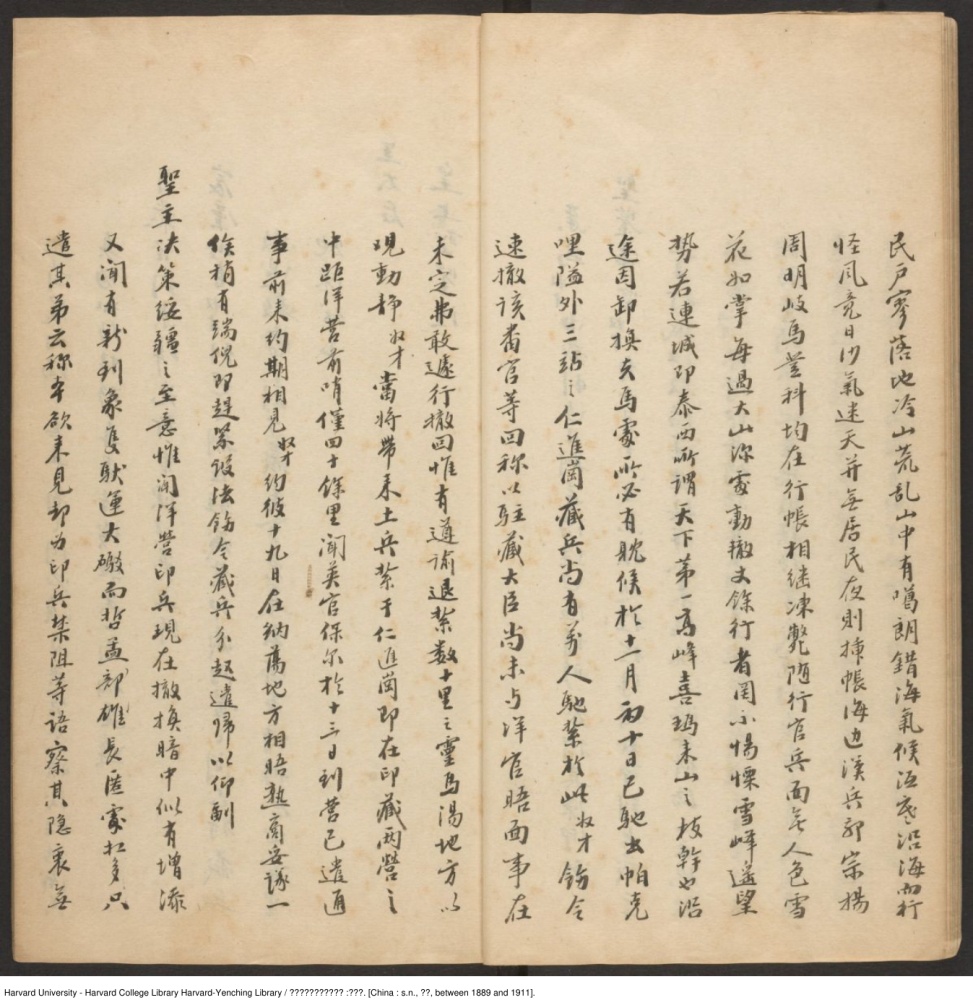 民戶寥落地冷山荒乱山中有噶朗錯海氣候沍寒沿海而行
怪風竟日沙氣迷天并無居民夜則揀帳海边漢兵郭宗揚
周明岐馬登科均在行帳相繼凍斃随行官兵面無人色雪
花如掌每過大山深處動輒丈餘行者罔不惕慄雪峰遥望
势若連城即泰西所謂天下第一高峰喜瑪來山之枝幹也沿
途因卸換夫馬處所必有躭候於十一月初十日已馳出帕克
哩隘外三站之仁進崗藏兵尚有萬人馳紮於此奴才飭令
速撤該番官等回称以駐藏大臣尚未与洋官晤面事在
未定弗敢遽行撤回惟有遵諭退紮数十里之靈馬湯地方以
覌動静奴才當將帶來土兵紮于仁進崗即在印藏兩營之
中距洋营前哨僅四十餘里聞英官保尔於十三日到营已遣通
事前来约期相見奴才约彼十九日在纳蕩地方相晤熟商妥議一
俟稍有端倪即趕緊設法飭令藏兵分起遣歸以仰副
聖主决策绥疆之至意惟闻洋营印兵現在撤換暗中似有增添
又闻有新到象隻馱運大礮而哲孟部雄長匿䝉扛多只
遣其弟云称本欲来見却为印兵禁阻等语察其隐衷無
Harvard University - Harvard College Library Harvard-Yenching Library / ??????????? :???. [China : s.n., ??, between 1889 and 1911].